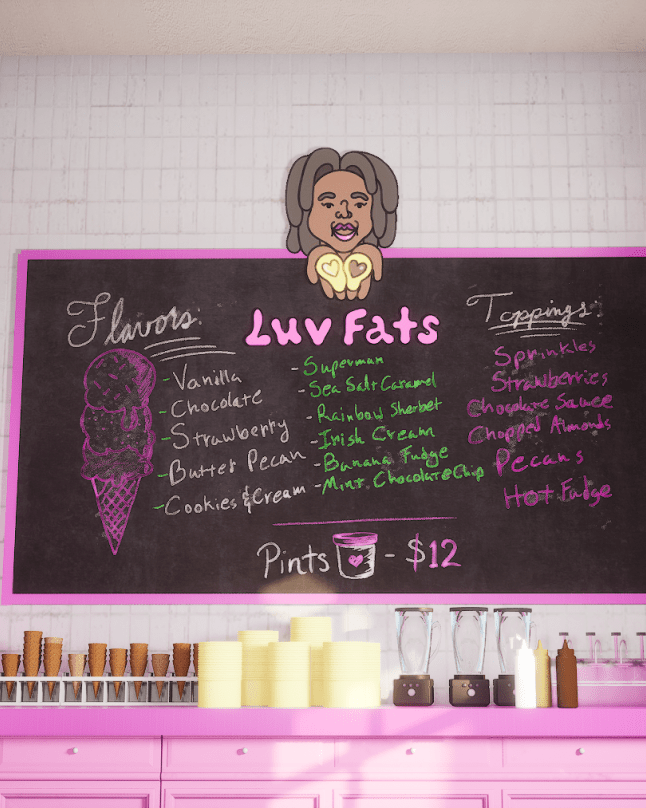 Flavors:
Luv Fats
Toppings:
- Vanilla
- Chocolate
- Strawberry
- Butter Pecan
- Cookies & Cream
- Superman
- Sea Salt Caramel
- Rainbow Sherbet
- Irish Cream
- Banana Fudge
- Mint Chocolate Chip
Sprinkles
Strawberries
Chocolate Sauce
Chopped Almonds
Pecans
Hot Fudge
Pints - $12